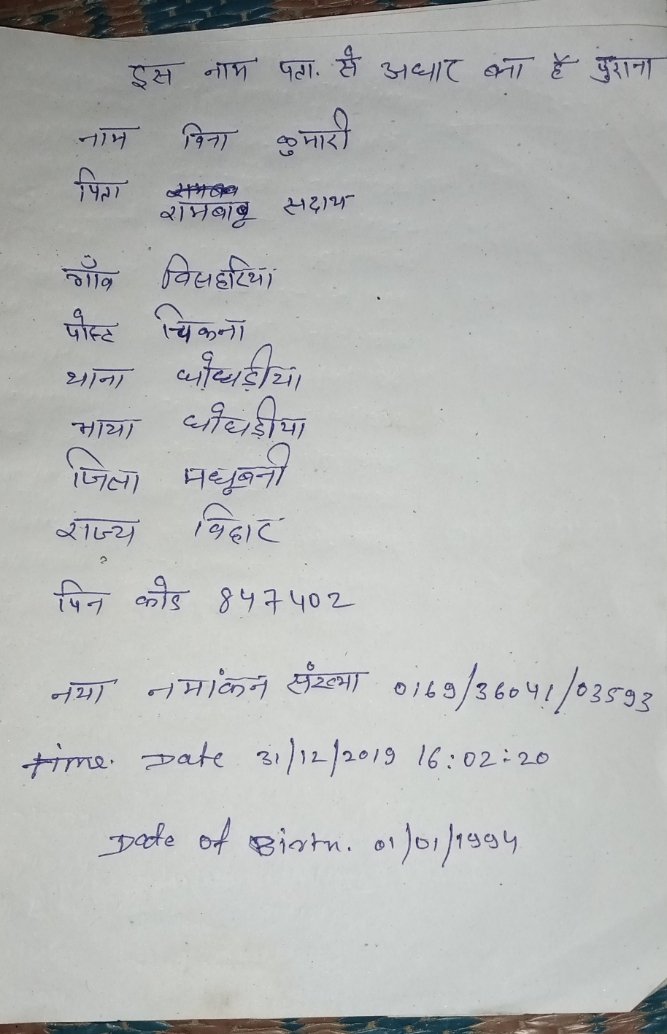 इस नाम पता. से अधार बना है पुराना
नाम विना कुमारी
पिता
रामबाबू सदाय
गाँव विसहरिया
पोस्ट चिकना
थाना घोघड़ीया
भाया घोघड़ीया
जिला मधूबनी
राज्य विहार
पिन कोड 847402
नया नमांकन संख्या 0169/36041/03593
time. Date 31/12/2019 16:02:20
Date of Birth. 01/01/1994